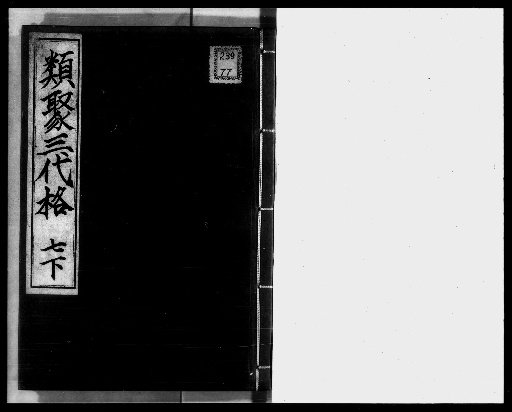 類聚三代格 七下
239
77